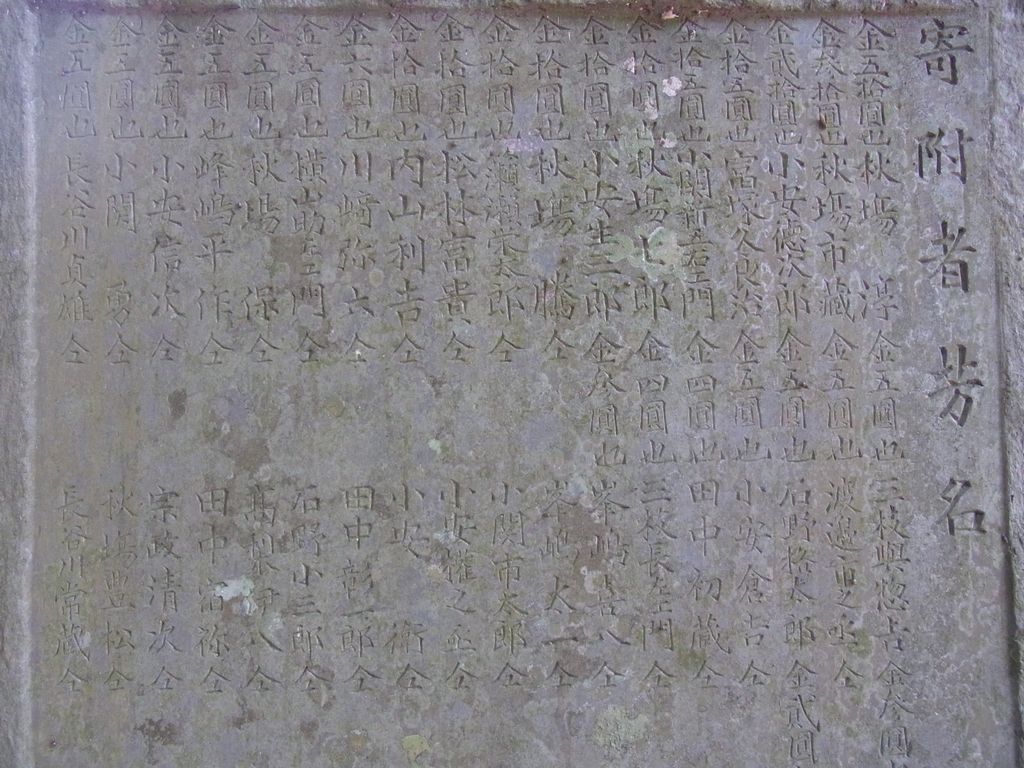 寄附者芳名
金五拾圓也 秋場 淳 金五圓也 三枝與惣吉 金参圓
金参拾圓也 秋場市藏 金五圓也 渡邉 仝
金弐拾圓也 小安德次郎 金五圓也 石野格太郎 金貳圓
金拾五圓也 冨塚久良治 金五圓也 小安倉吉 仝
金拾五圓也 小関新五右エ門 金四圓也 田中初蔵 仝
金拾圓也 秋場七郎 金四圓也 三枝長左エ門 仝
金拾圓也 小安生三郎 金参圓也 峯嶋喜八 仝
金拾圓也 秋場 騰 仝 峯嶋太一 仝
金拾圓也 瀬榮太郎 仝 小関市太郎 仝
金拾圓也 松林富貴 仝 小安權之丞 仝
金拾圓也 内山利吉 仝 小安 衛 仝
金六圓也 川﨑弥六 仝 田中彰一郎 仝
金五圓也 横山助左エ門 仝 石野小三郎 仝
金五圓也 秋場 保 仝 髙 八 仝
金五圓也 峰嶋平作 仝 田中富祢 仝
金五圓也 小安信次 仝 宗政清次 仝
金五圓也 小関 勇 仝 秋場豊松 仝
金五圓也 長谷川貞雄 仝 長谷川常蔵 仝